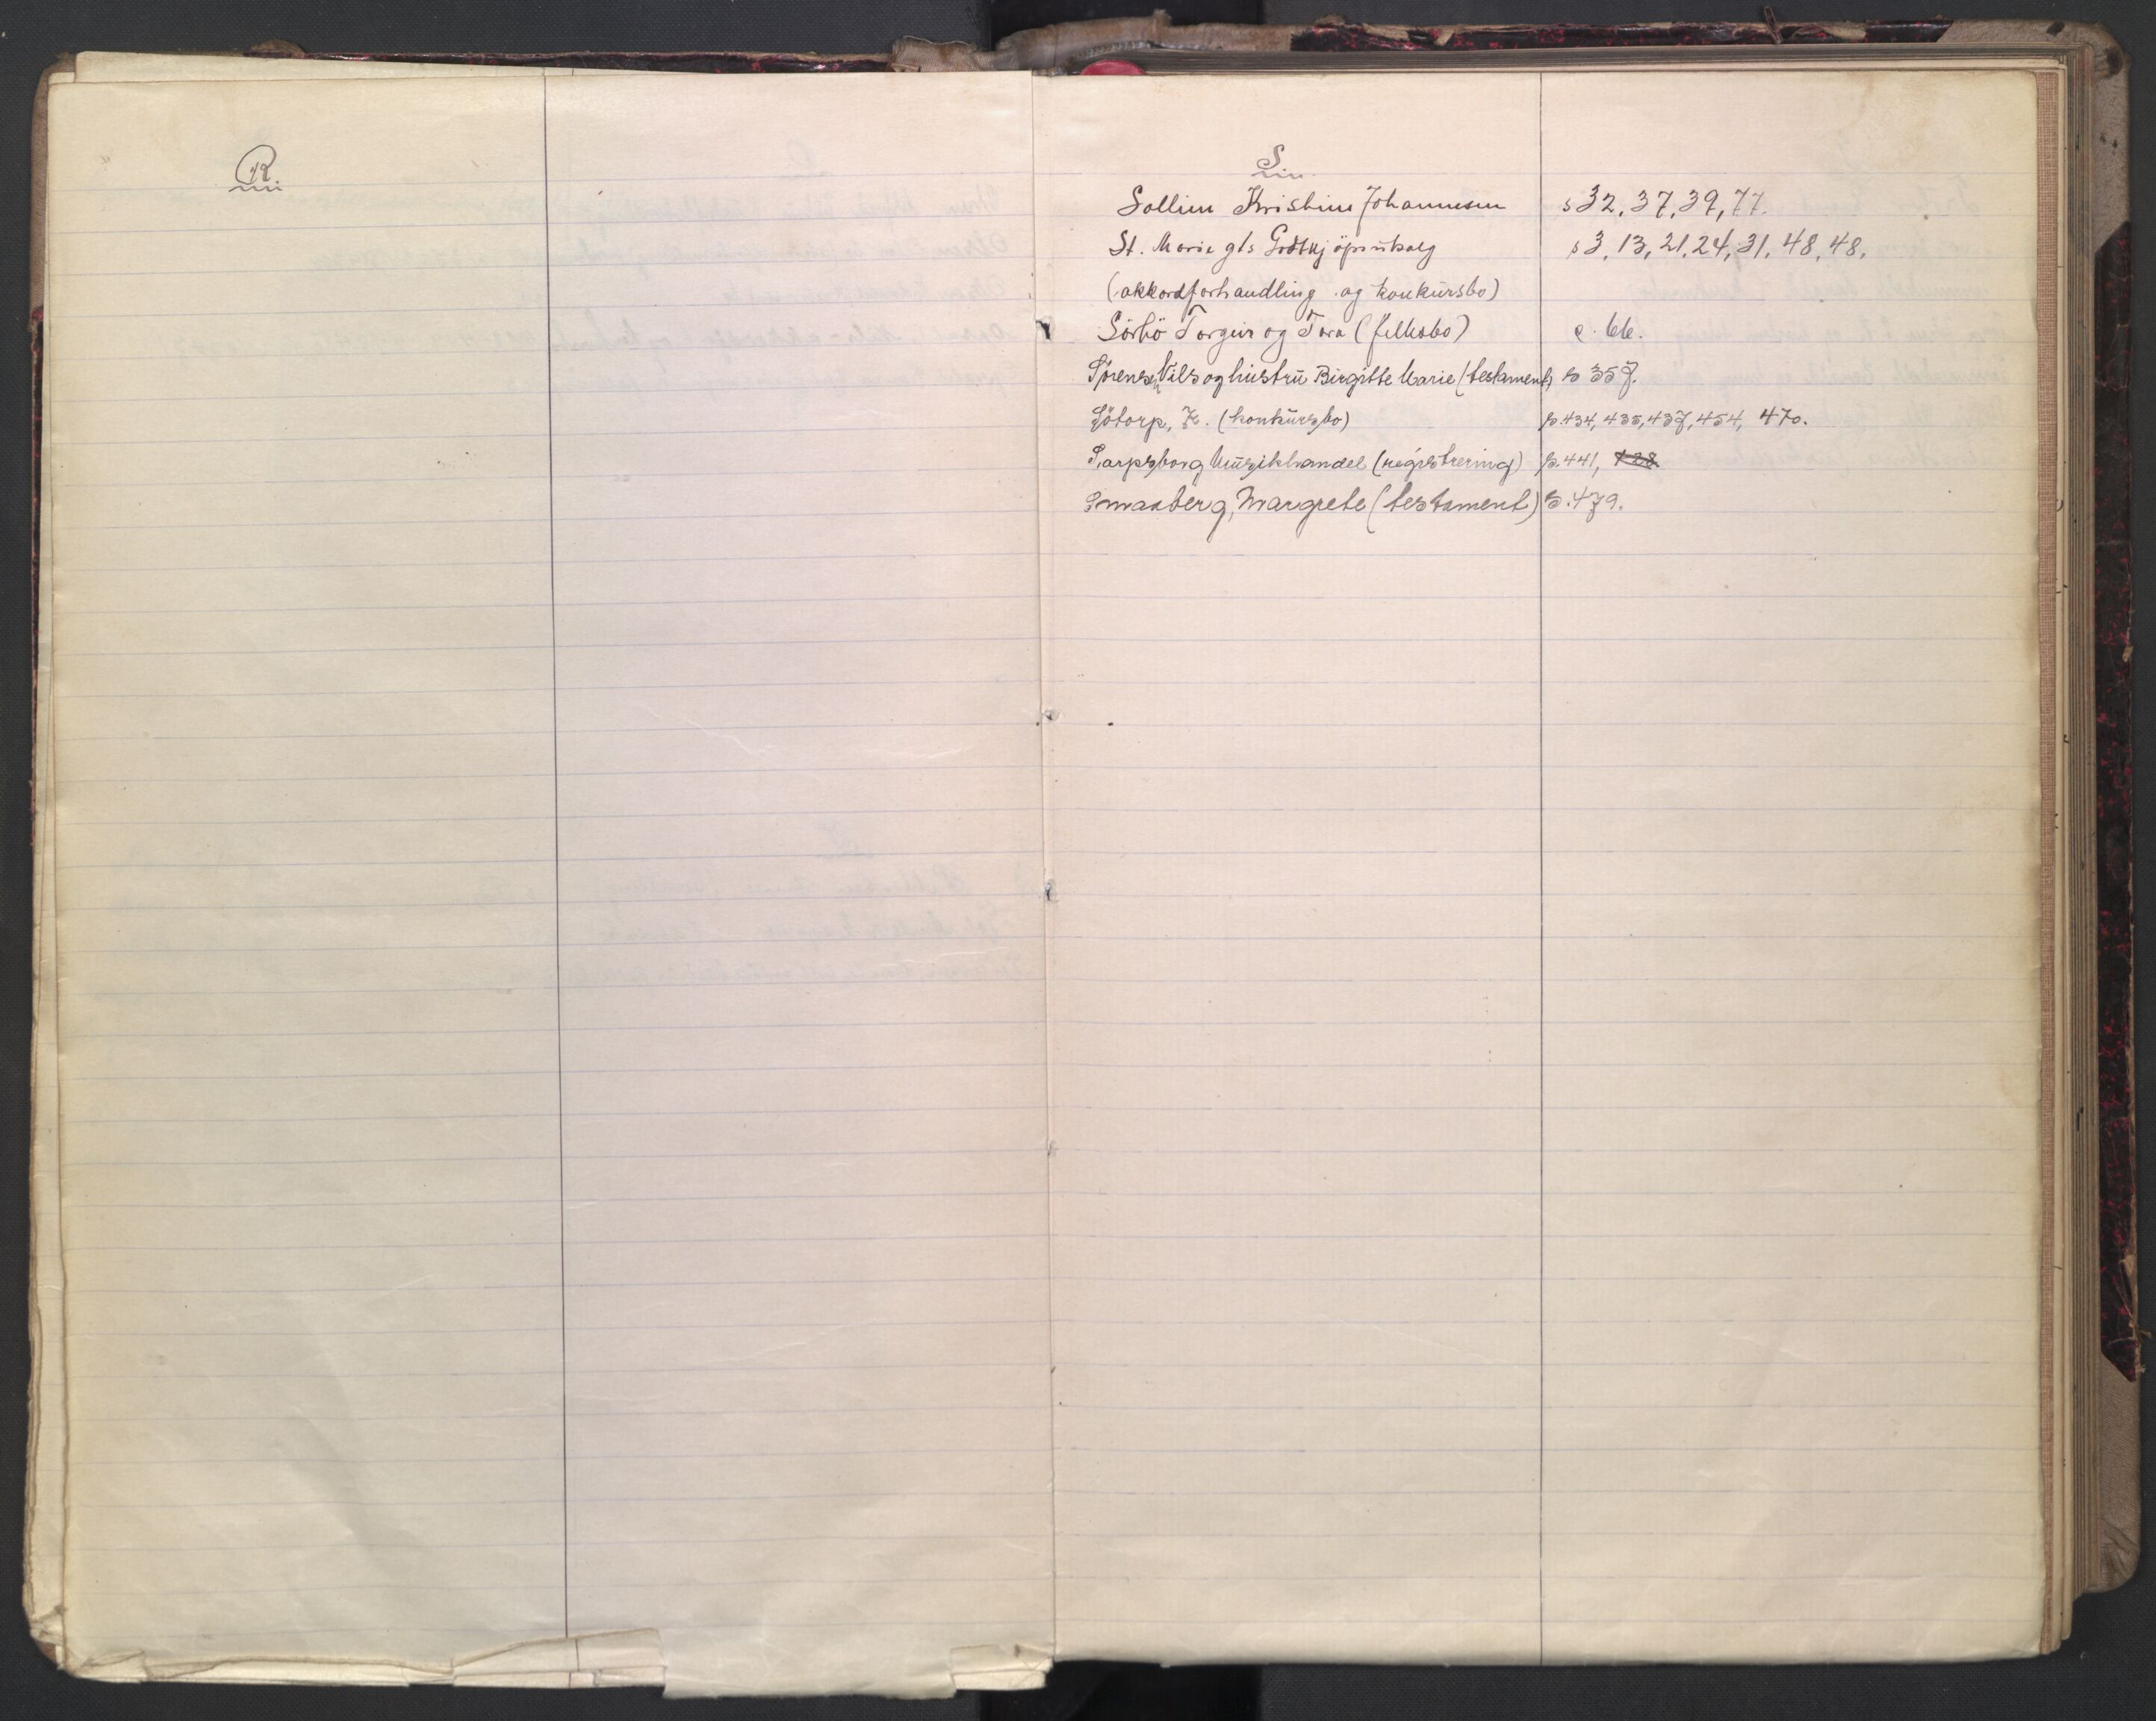 R
S
Sollien Kristine Johannesen s 32, 37, 39, 77.
St. Marie gts Godtkjöpsutsalg s 3, 13, 21, 24, 31, 48, 48,
(akkordforhandling og konkursbo)
Sörbö Torgeir og Tora (fellesbo) s. 66.
Sørensen, Nils og hustru Birgitte Marie (testament) s 357.
Götorp, K. (konkursbo) s. 434, 435, 437, 454, 470.
Sarpsborg Musikhandel (registrering) s. 441,
Smaaberg, Margrete (testament) s. 479.